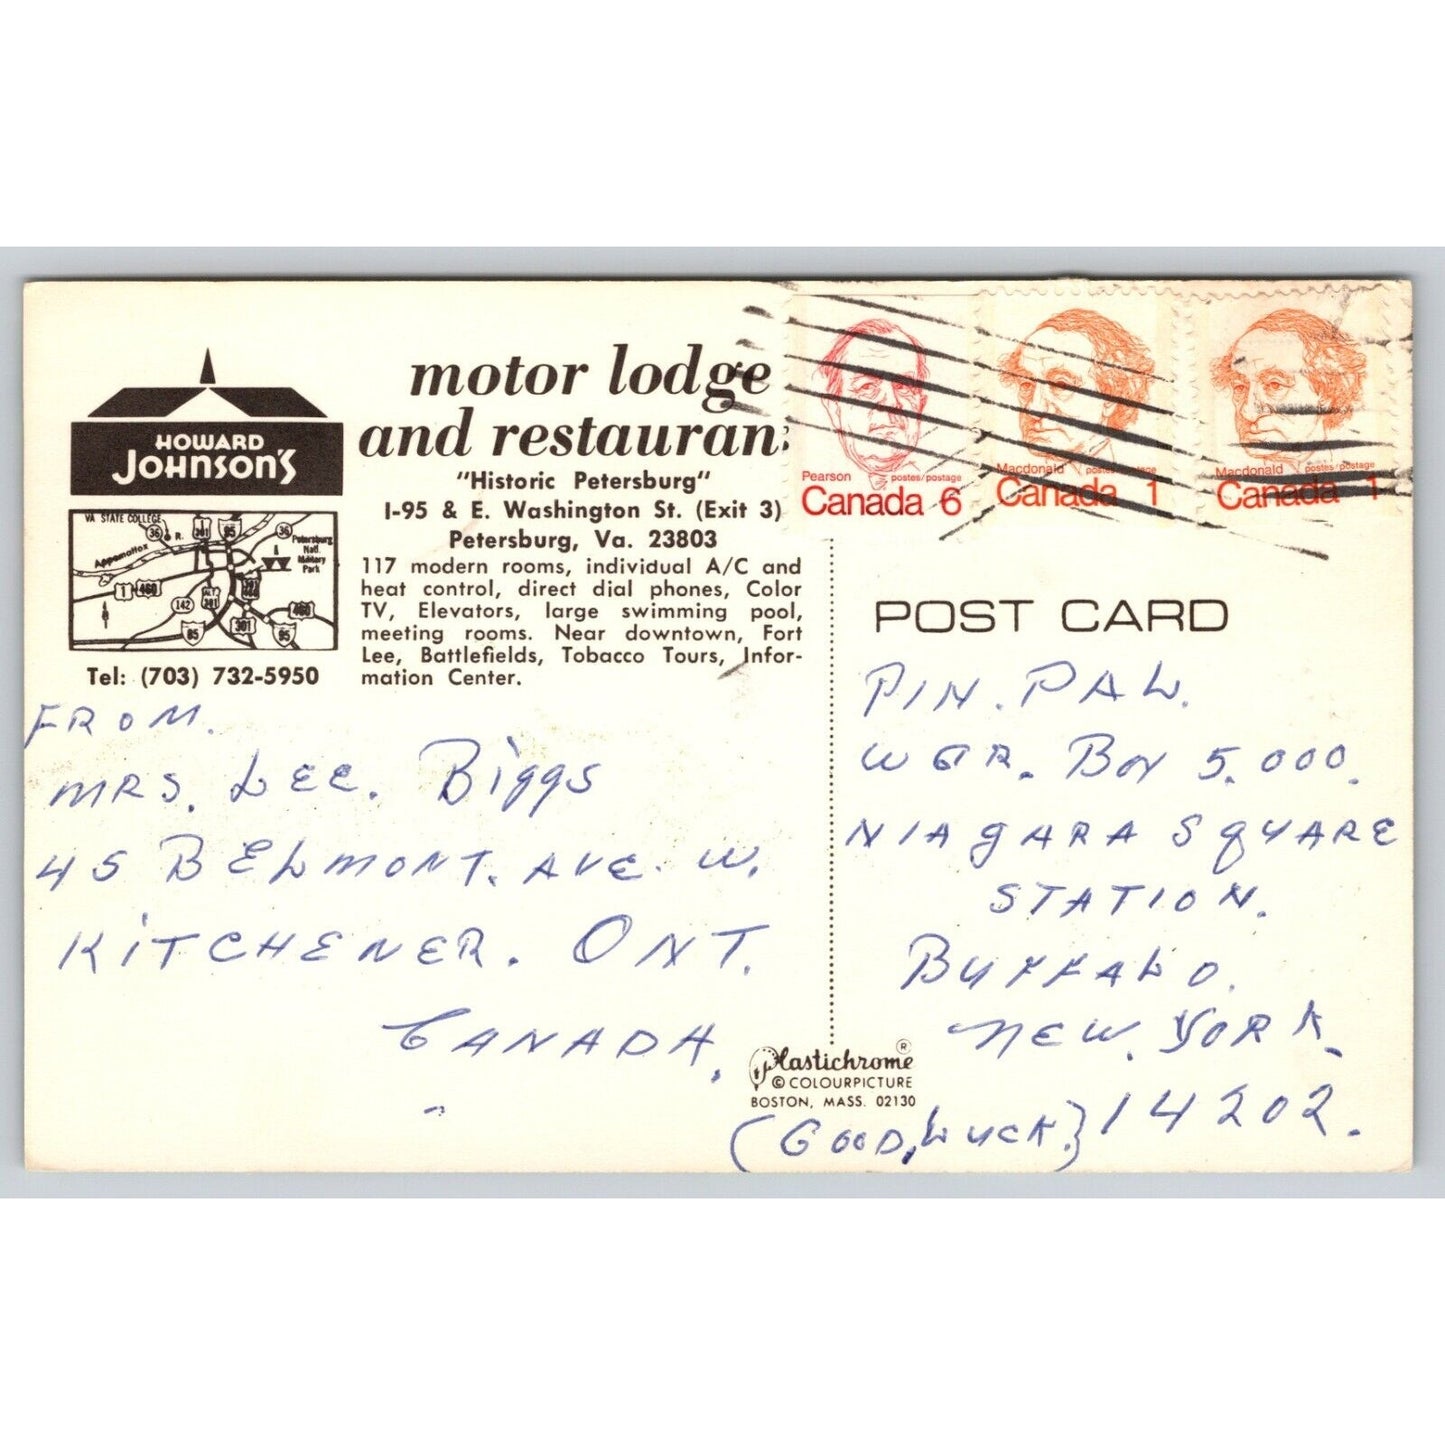 HOWARD
JOHNSON'S
motor lodge
and restaurant
"Historic Petersburg"
I-95 & E. Washington St. (Exit 3)
Petersburg, Va. 23803
117 modern rooms, individual A/C and
heat control, direct dial phones, Color
TV, Elevators, large swimming pool,
meeting rooms. Near downtown, Fort
Lee, Battlefields, Tobacco Tours, Infor-
mation Center.
VA STATE COLLEGE
36
R.
1
301
85
36
Petersburg
Natl.
Military
Park
Appomattox
1
460
142
ALT.
301
460
85
301
95
Tel: (703) 732-5950
Pearson postes/postage
Canada 6
Macdonald postes/postage
Canada 1
Macdonald postes/postage
Canada 1
POST CARD
FROM.
MRS. LEE. Biggs
45 BELMONT. AVE. W.
KITCHENER. ONT.
CANADA.
PIN. PAL.
WGR. Box 5.000.
NIAGARA SQUARE
STATION.
BUFFALO.
NEW. YORK.
14202.
(GOOD, LUCK.)
Plastichrome ®
© COLOURPICTURE
BOSTON, MASS. 02130